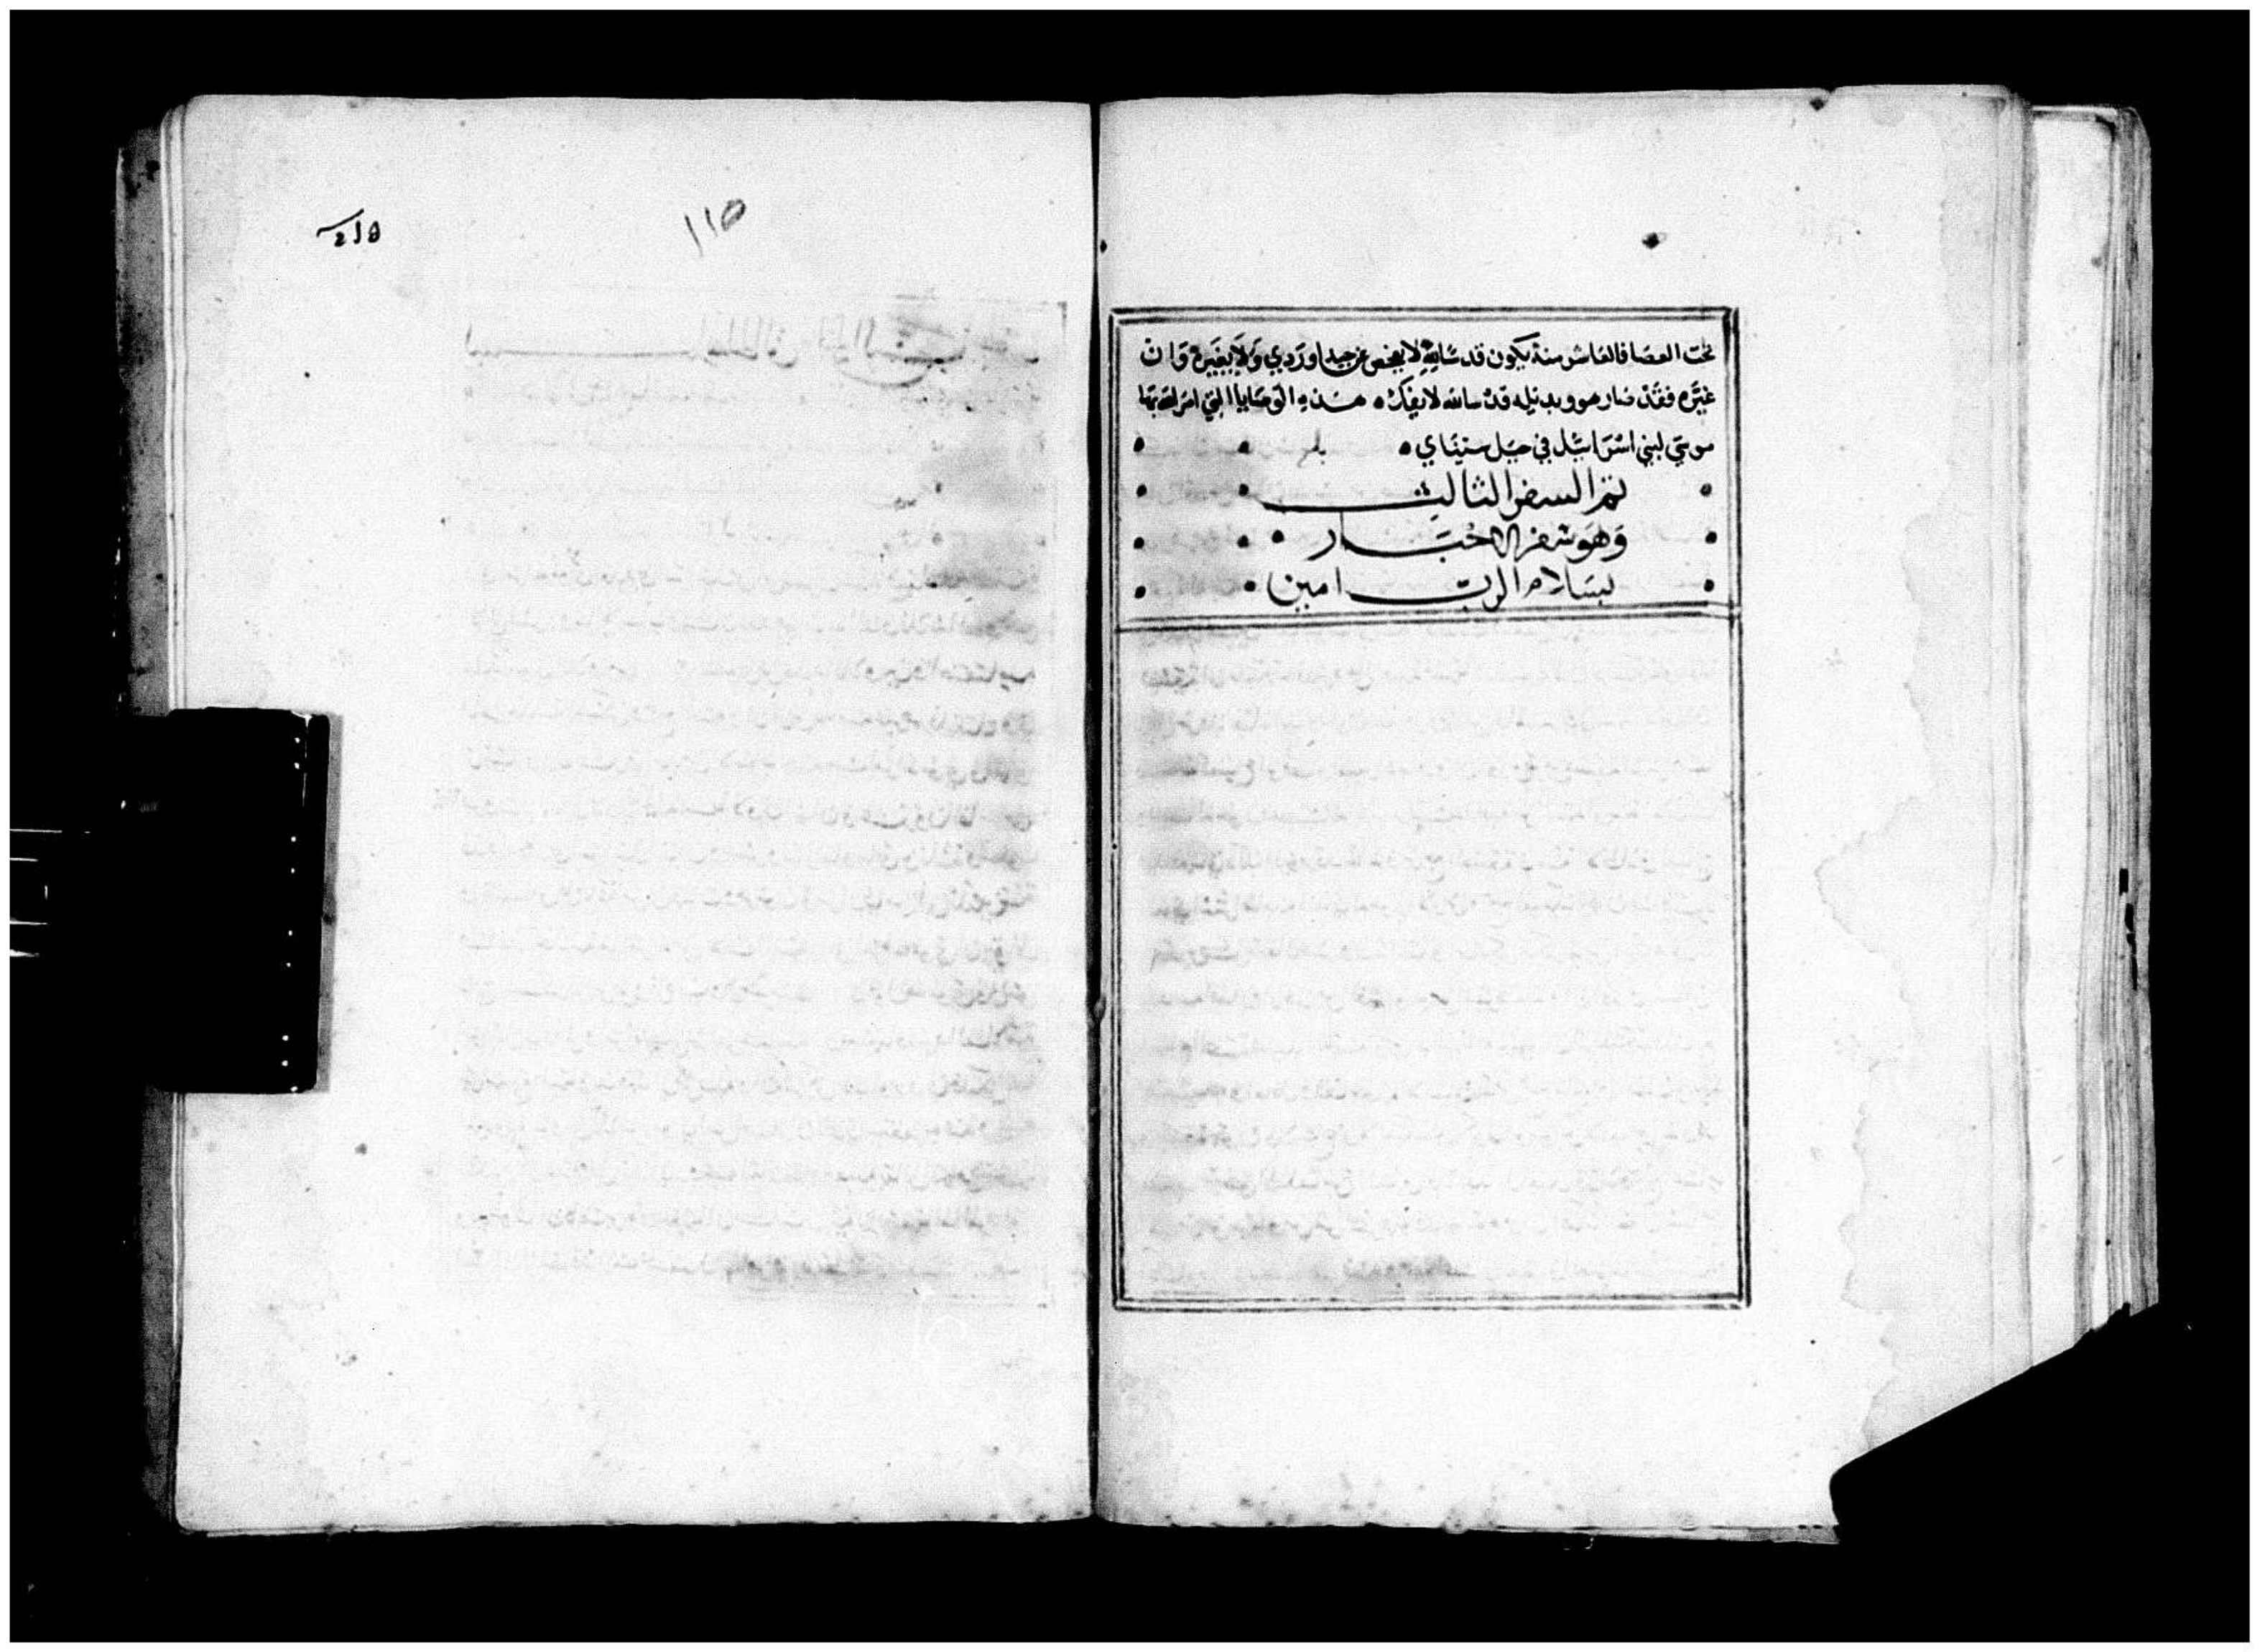 تحت العصا فالعاشر منه يكون قدسًا لله لا يفحص عن جيد او ردي وَلا يغَيره وَان
غيَّره فقد صار هو وبديله قدسا لله لا يفك • هذه الوصَايا التي امر الله بها
موسَي لبني اسرَائيل في جبل سيناي •
تم السفر الثالث
وَهوَ سفر الاحبَار
بسَلام الربّ امين
١١٥